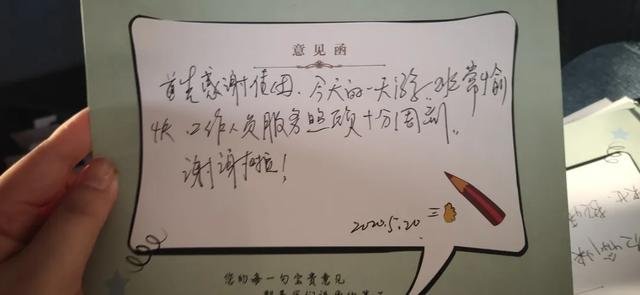 意见函
首先感谢佳田、今天的一天游、非常愉
快、工作人员服务照顾十分周到。
谢谢啦！
2020.5.20 三
您的每一句宝贵意见